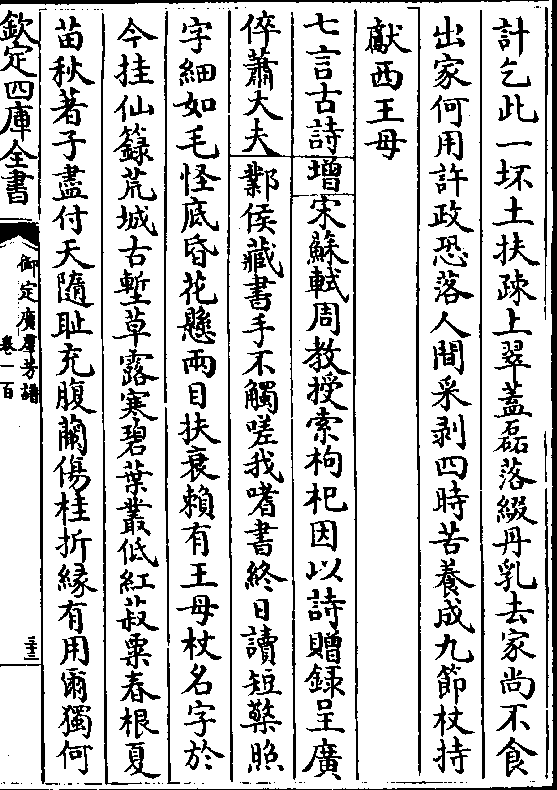 計乞此一坏土扶疎上翠蓋磊落綴丹乳去家尚不食
出家何用許政恐落人間采剥四時苦養成九節杖持
獻西王母
七言古詩增宋蘇軾周教授索枸杞因以詩贈録呈廣
倅蕭大夫 鄴侯藏書手不觸嗟我嗜書終日讀短檠照
字細如毛怪底昏花懸兩目扶衰賴有王母杖名字於
今挂仙籙荒城古塹草露寒碧葉叢低紅菽粟春根夏
苗秋著子盡付天隨耻充腹蘭傷桂折緣有用爾獨何
欽定四庫全書
御定廣羣芳譜
卷一百
三十三